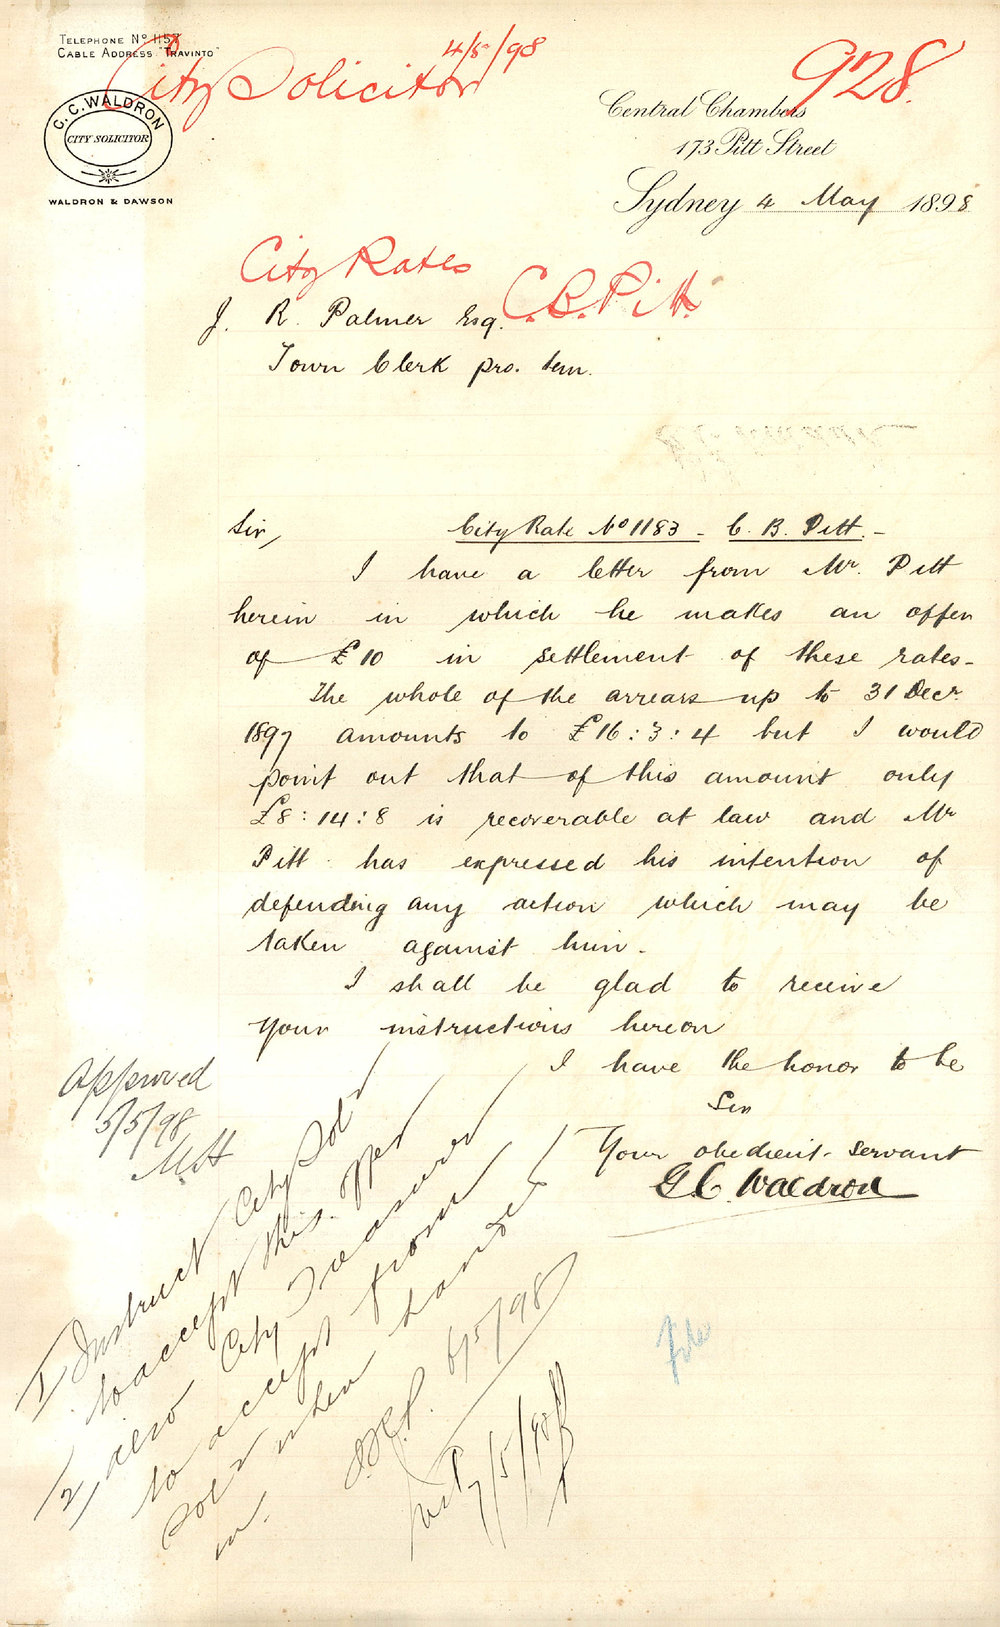 TELEPHONE No 1157
CABLE ADDRESS "TRAVINTO"
4/5/98
City Solicitor
928.
C. C. WALDRON
CITY SOLICITOR
WALDRON & DAWSON
Central Chambers
173 Pitt Street
Sydney 4 May 1898
City Rates
C. B. Pitt.
J. R. Palmer Esq.
Town Clerk pro. tem.
Sir,
City Rate No 1183 - C. B. Pitt. -
I have a letter from Mr. Pitt
herein in which he makes an offer
of £10 in settlement of these rates -
The whole of the arrears up to 31 Decr.
1897 amounts to £16 : 3 : 4 but I would
point out that of this amount only
£8 : 14 : 8 is recoverable at law and Mr
Pitt has expressed his intention of
defending any action which may be
taken against him -
I shall be glad to receive
your instructions hereon
I have the honor to be
Sir
Your obedient servant
G C. Waldron
Approved
5/5/98
1/ Instruct City Solr
to accept this offer
2/ also City Treasurer
to accept from
Solr when handed
in.
6/5/98
7/5/98
File